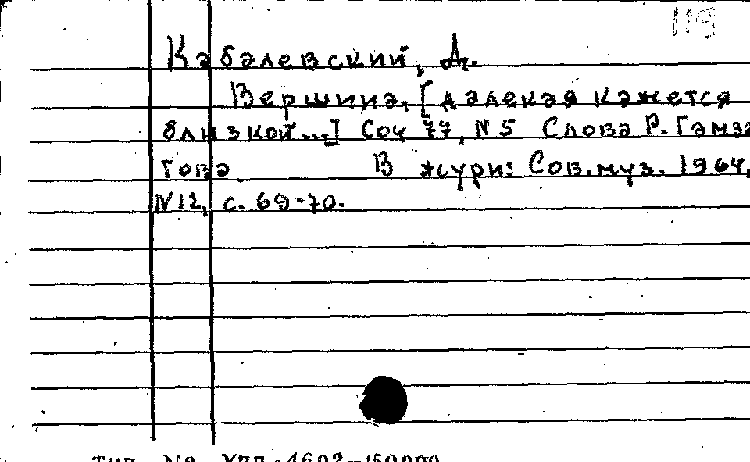 119
Кабалевский, Д.
Вершина. [Далекая кажется
близкой...] Соч 77, N 5 Слова Р. Гамза
това. В журн: Сов. муз. 1964,
N 12, с. 69-70.